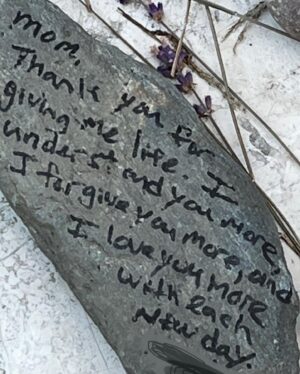 mom,
Thank you for
giving me life. I
understand you more,
I forgive you more, and
I love you more
with each
New day.